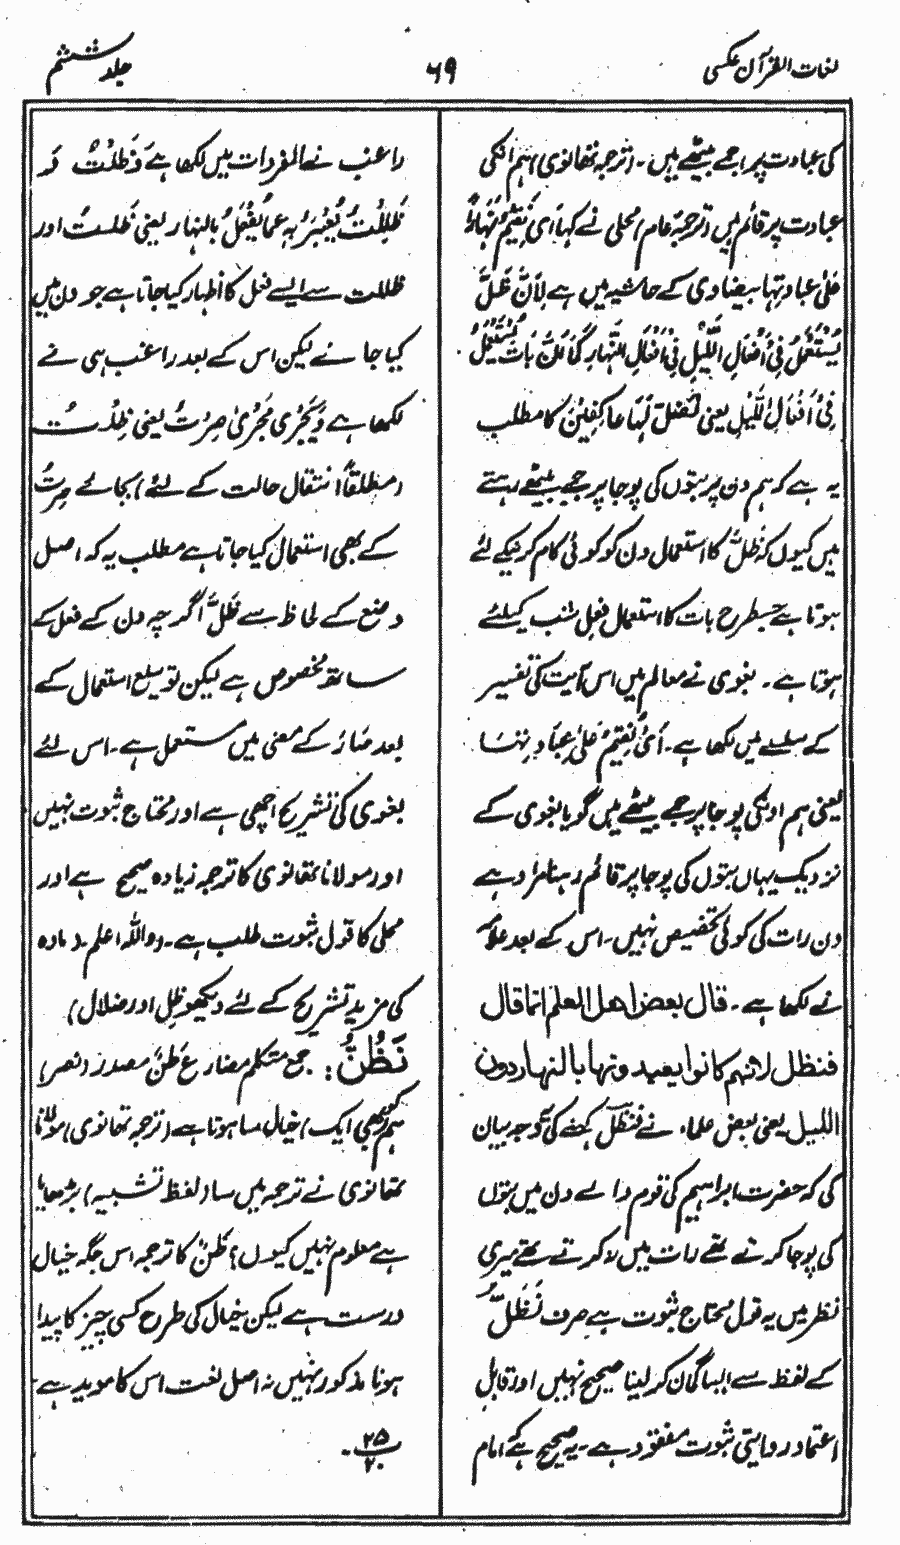 لغات القرآن عکسی
۶۹
جلد ششم
کی عبادت پر جمے بیٹھے ہیں۔ (ترجمہ تھانوی) ہم انکی
عبادت پر قائم ہیں (ترجمۂ عام) محلی نے کہا اَیْ نُقِیْمُ نَهَارًا
عَلیٰ عبادتِہا بیضاوی کے حاشیہ میں ہے لِاَنَّ ظَلَّ
یُسْتَعْمَلُ فِیْ اَفْعَالِ النَّهَارِ کَمَا اَنَّ بَاتَ یُسْتَعْمَلُ
فِیْ اَفْعَالِ اللَّیْلِ یعنی فَنَظَلُّ لَہَا عَاکِفِیْنَ کا مطلب
یہ ہے کہ ہم دن بھر بتوں کی پوجا پر جمے بیٹھے رہتے
ہیں کیوں کہ ظَلَّ کا استعمال دن کو کوئی کام کرنیکے لئے
ہوتا ہے جسطرح بات کا استعمال فعل شب کیلئے
ہوتا ہے۔ بغوی نے معالم میں اس آیت کی تفسیر
کے سلسلے میں لکھا ہے۔ اَیْ نُقِیْمُ عَلیٰ عِبَادَتِہَا
یعنی ہم اونکی پوجا پر جمے بیٹھے ہیں گویا بغوی کے
نزدیک یہاں بتوں کی پوجا پر قائم رہنا مراد ہے
دن رات کی کوئی تخصیص نہیں۔ اس کے بعد علامہ
نے لکھا ہے۔ قال بعض اهل العلم انما قال
فنظل لانهم کانوا یعبدونها بالنهار دون
اللیل یعنی بعض علماء نے فنظلّ کہنے کی توجہ بیان
کی کہ حضرت ابراہیم کی قوم والے دن میں بتوں
کی پوجا کرتے تھے رات میں نہ کرتے تھے میری
نظر میں یہ قول محتاج ثبوت ہے صرف نَظَلُّ
کے لفظ سے ایسا گمان کر لینا صحیح نہیں اور قابل
اعتماد روایتی ثبوت مفقود ہے۔ یہ صحیح ہے کہ امام
راغب نے المفردات میں لکھا ہے وَظَلْتُ وَ
ظَلِلْتُ یُعَبَّرُ بِہٖ عَمَّا یُفْعَلُ بالنہار یعنی ظَلْتُ اور
ظللت سے ایسے فعل کا اظہار کیا جاتا ہے جو دن میں
کیا جائے لیکن اس کے بعد راغب ہی نے
لکھا ہے وَیَجْرِی مَجْرٰی صِرْتُ یعنی ظِلْتُ
(مطلقاً انتقال حالت کے لئے) بجائے صِرْتُ
کے بھی استعمال کیا جاتا ہے مطلب یہ کہ اصل
وضع کے لحاظ سے ظَلَّ اگرچہ دن کے فعل کے
ساتھ مخصوص ہے لیکن توسیع استعمال کے
بعد صَارَ کے معنی میں مستعمل ہے۔ اس لئے
بغوی کی تشریح اچھی ہے اور محتاج ثبوت نہیں
اور مولانا تھانوی کا ترجمہ زیادہ صحیح ہے اور
محلی کا قول ثبوت طلب ہے۔ واللہ اعلم۔ (مادہ
کی مزید تشریح کے لئے دیکھو ظل اور ضلال)
نَظُنُّ: جمع متکلم مضارع ظَنٌّ مصدر (نصر)
ہم کبھی ایک) خیال سا ہوتا ہے (ترجمہ تھانوی) مولانا
تھانوی نے ترجمہ میں سا (لفظ تشبیہ) بڑھایا
ہے معلوم نہیں کیوں؟ ظَنٌّ کا ترجمہ اس جگہ خیال
درست ہے لیکن خیال کی طرح کسی چیز کا پیدا
ہونا مذکور نہیں نہ اصل لغت اس کا موید ہے
۲۵
۲۰